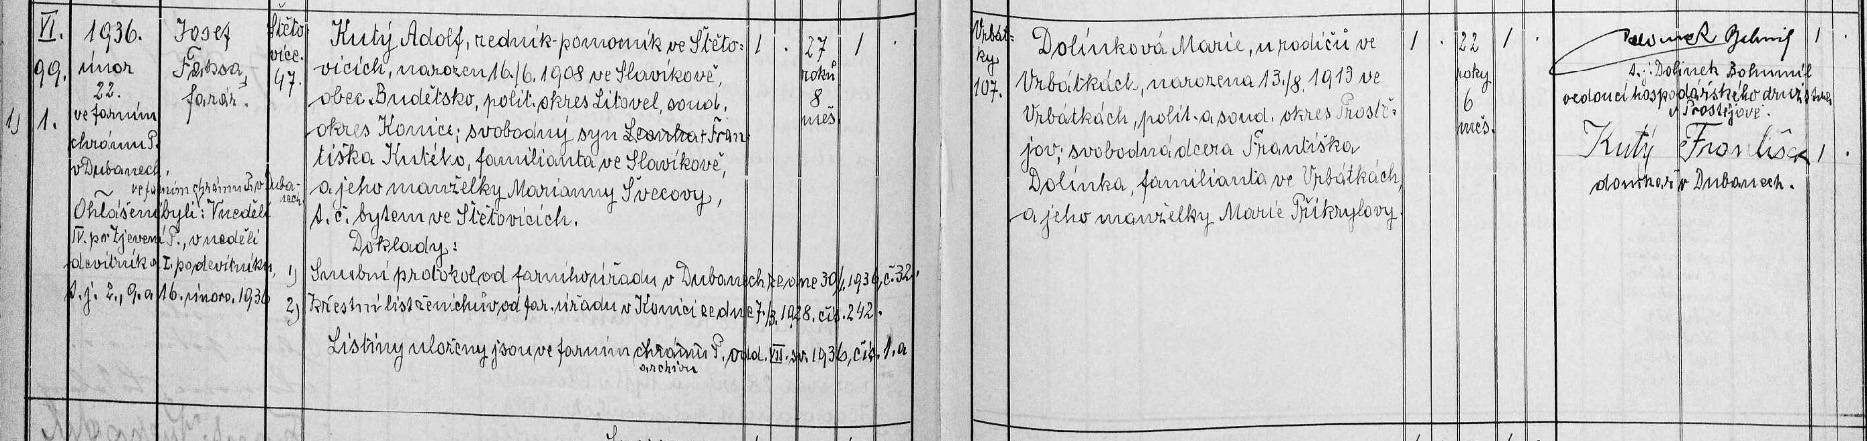 VI.
99.
1) 1.
1936.
únor
22.
ve farním
chrámu P.
v Dubanech,
ve farním chrámu P. v Duba-
nech.
Ohlášeni byli: V neděli
IV. po Zjevení P., v neděli
devítník a I. po devítníku,
t. j. 2., 9. a 16. února 1936
Josef
farář.
Štěto-
vice.
47.
Kutý Adolf, řezník-pomocník ve Štěto-
vicích, narozen 16./6. 1908 ve Slavíkově,
obec Budětsko, polit. okres Litovel, soud.
okres Konice; svobodný syn Fran-
tiška Kutého, familianta ve Slavíkově,
a jeho manželky Marianny Švecovy,
t. č. bytem ve Štětovicích.
Doklady:
1) Snubní protokol od farního úřadu v Dubanech ze dne 30/1. 1936, č. 32.
2) Křestní list ženichův od far. úřadu v Konici ze dne 7./3. 1928. čís. 242.
Listiny uloženy jsou ve farním chrámu P., odd. VII. sv. 1936, čís. 1. a
archivu
1 .
27
roků
8
měs.
1 .
Vrbát-
ky
107.
Dolínková Marie, u rodičů ve
Vrbátkách, narozena 13./8. 1913 ve
Vrbátkách, polit. a soud. okres Prostě-
jov; svobodná dcera Františka
Dolínka, familianta ve Vrbátkách,
a jeho manželky Marie Přikrylovy.
1 .
22
roky
6
měs.
1 .
t. j. Dolínek Bohumil
vedoucí hospodářského družstva
v Prostějově.
1 .
Kutý František 1 .
domkař v Dubanech.